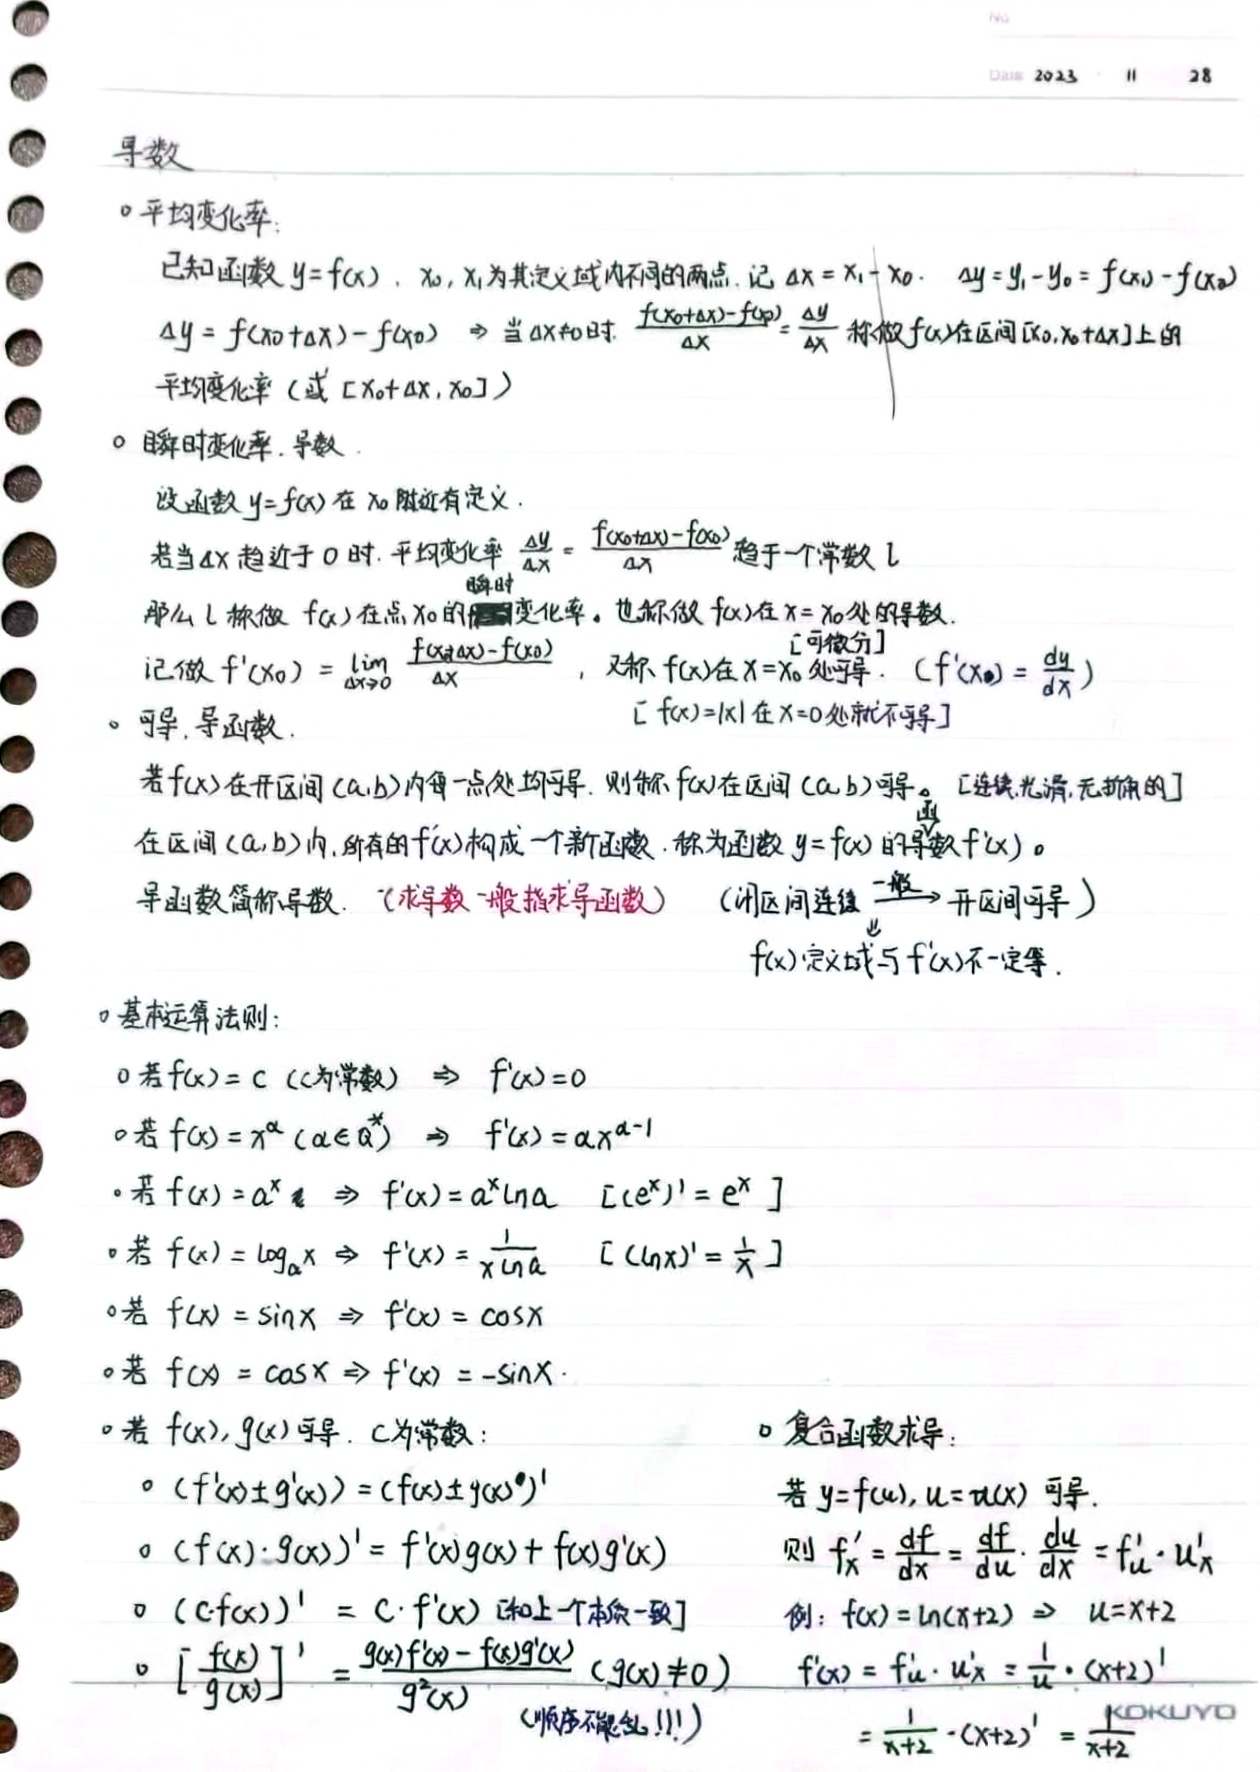 No.
Date 2023 · 11 28
导数
○ 平均变化率:
已知函数 y=f(x), x₀, x₁为其定义域内不同的两点.记 Δx = x₁-x₀. Δy=y₁-y₀=f(x₁)-f(x₀)
Δy = f(x₀+Δx)-f(x₀) ⇒ 当Δx≠0时. (f(x₀+Δx)-f(x₀))/Δx = Δy/Δx 称做f(x)在区间[x₀,x₀+Δx]上的
平均变化率(或[x₀+Δx, x₀])
○ 瞬时变化率.导数.
设函数y=f(x)在x₀附近有定义.
若当Δx趋近于0时.平均变化率 Δy/Δx = (f(x₀+Δx)-f(x₀))/Δx 趋于一个常数l
那么l称做 f(x)在点x₀的瞬时变化率。也称做f(x)在x=x₀处的导数.
记做f'(x₀) = lim Δx→0 (f(x₀+Δx)-f(x₀))/Δx , 又称f(x)在x=x₀处可导[可微分]. (f'(x₀) = dy/dx)
[f(x)=|x|在x=0处就不可导]
○ 可导.导函数.
若f(x)在开区间(a,b)内每一点处均可导.则称f(x)在区间(a,b)可导。 [连续,光滑,无折角的]
在区间(a,b)内,所有的f'(x)构成一个新函数.称为函数y=f(x)的导函数f'(x)。
导函数简称导数. (求导数一般指求导函数) (闭区间连续 一般→ 开区间可导)
⇓
f(x)定义域与f'(x)不一定等.
○ 基本运算法则:
○ 若f(x)=C (C为常数) ⇒ f'(x)=0
○ 若f(x)=x^α (α∈Q*) ⇒ f'(x)=αx^(α-1)
○ 若f(x)=a^x ⇒ f'(x)=a^x lna [(e^x)'=e^x]
○ 若f(x)=log_a x ⇒ f'(x)=1/(x lna) [(lnx)'=1/x]
○ 若f(x)=sinx ⇒ f'(x)=cosx
○ 若f(x)=cosx ⇒ f'(x)=-sinx.
○ 若f(x), g(x)可导. C为常数:
○ (f'(x)±g'(x))=(f(x)±g(x))'
○ (f(x)·g(x))'=f'(x)g(x)+f(x)g'(x)
○ (C·f(x))' = C·f'(x) [和上一个本质一致]
○ [f(x)/g(x)]' = (g(x)f'(x)-f(x)g'(x))/g²(x) (g(x)≠0)
(顺序不能乱!!!)
○ 复合函数求导:
若y=f(u), u=u(x) 可导.
则 f'ₓ = df/dx = df/du · du/dx = f'ᵤ·u'ₓ
例: f(x)=ln(x+2) ⇒ u=x+2
f'(x) = f'ᵤ·u'ₓ = 1/u·(x+2)'
= 1/(x+2)·(x+2)' = 1/(x+2)
KOKUYO